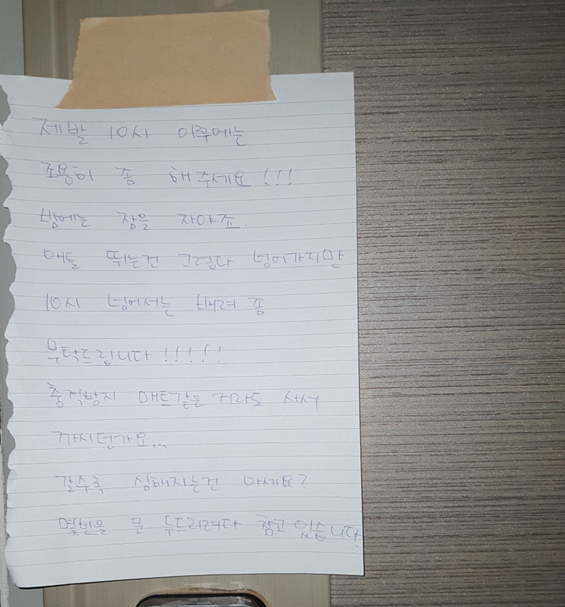 제발 10시 이후에는
조용히 좀 해주세요!!!
밤에는 잠을 자야죠.
애들 뛰는건 그렇다 넘어가지만
10시 넘어서는 배려 좀
부탁드립니다!!!!!
충격방지 매트같은 거라도 사서
까시던가요...
갈수록 심해지는건 아세요?
몇번을 문 두드리려다 참고 있습니다